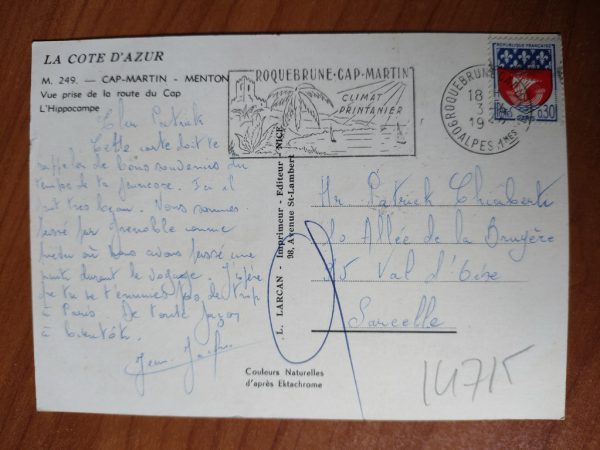 LA COTE D'AZUR
M. 249. — CAP-MARTIN - MENTON
Vue prise de la route du Cap
L'Hippocampe
Cher Patrick
Cette carte doit te
rappeler de bons souvenirs du
temps de ta jeunesse. J'ai
fait très bon. Nous sommes
passé par Grenoble comme
prévu où nous avons passé une
nuit durant le voyage. J'espère
que tu ne t'ennuies pas de trop
à Paris. De toute façon
à bientôt.
Jean
ROQUEBRUNE-CAP-MARTIN
CLIMAT
PRINTANIER
ROQUEBRUNE
18
3
19
ALPES Mmes
REPUBLIQUE FRANÇAISE
0,30
L. LARCAN - Imprimeur - Editeur - NICE
98, Avenue St-Lambert
Mr Patrick Chiaberti
Allée de la Bruyère
95 Val d'Oise
Sarcelle
Couleurs Naturelles
d'après Ektachrome
14715